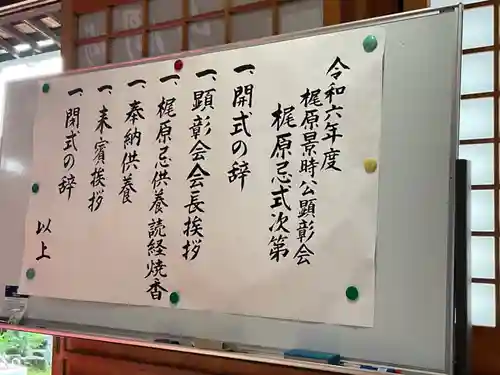 令和六年度
梶原景時公顕彰会
梶原忌式次第
一、開式の辞
一、顕彰会会長挨拶
一、梶原忌供養読経焼香
一、奉納供養
一、来賓挨拶
一、閉式の辞
以上